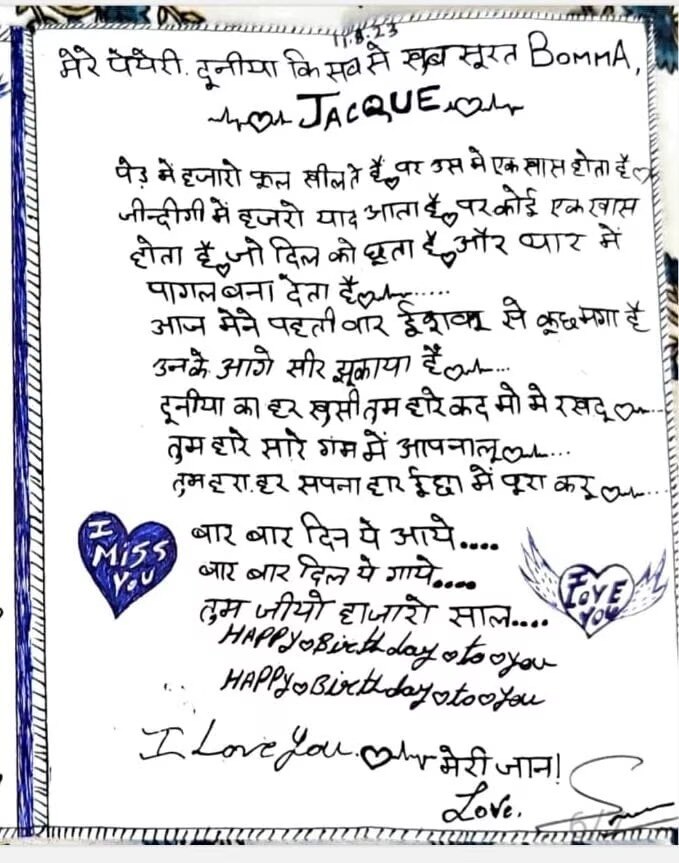 11.8.23
मेरे पेयेरी. दूनीया कि सब से खूब सूरत BOMMA,
JACQUE
पेड़ में हजारो फूल खीलते हैं, पर उस मे एक खास होता है
जीन्दीगी में हजारो याद आता है, पर कोई एक खास
होता है, जो दिल को छूता है, और प्यार में
पागल बना देता है......
आज मेने पहली बार ईशवर से कूछ मगा है
उनके आगे सीर झूकाया हैं...
दूनीया का हर खुसी तुम हारे कद मो मे रखदू...
तुम हारे सारे गम में आपनालू...
तुम हरा. हर सपना हार ईछा में पूरा करू....
I MISS YOU
बार बार दिन ये आये....
बार बार दिल ये गाये....
I LOVE YOU
तुम जीयो हाजारो साल....
HAPPY Birthday to you
HAPPY Birthday to you
I Love You. मेरी जान!
Love.